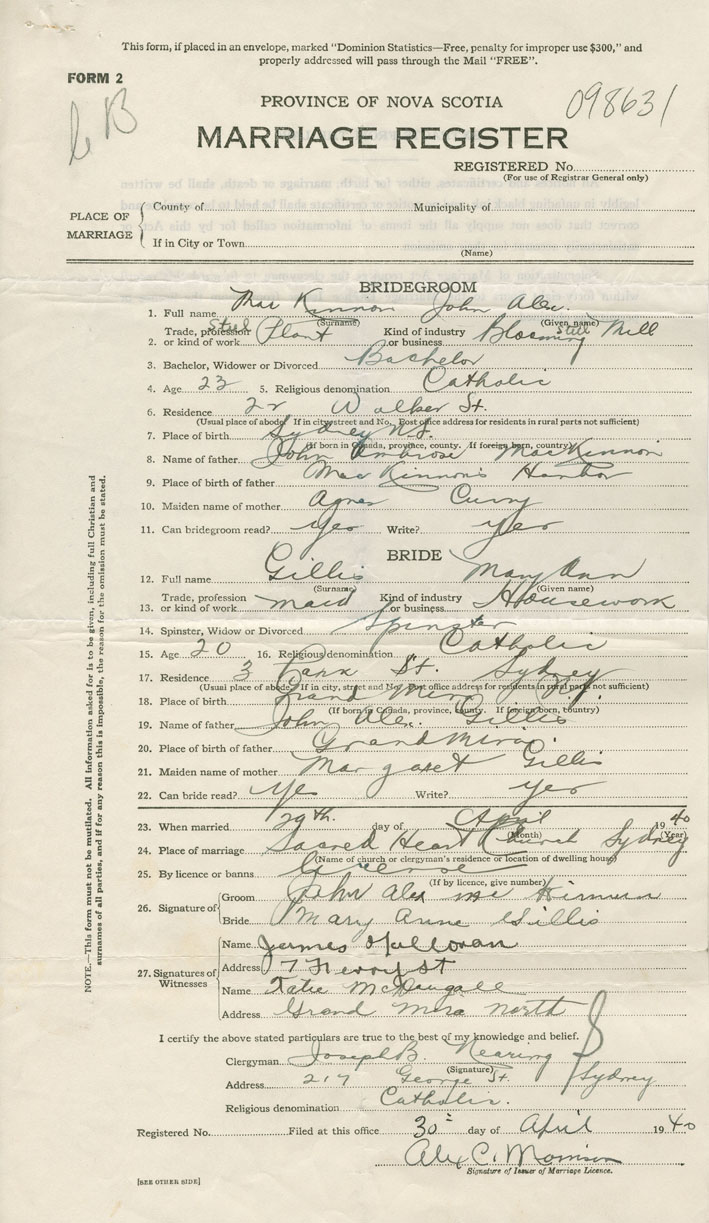 This form, if placed in an envelope, marked "Dominion Statistics—Free, penalty for improper use $300," and
properly addressed will pass through the Mail "FREE".
FORM 2
PROVINCE OF NOVA SCOTIA
098631
MARRIAGE REGISTER
REGISTERED No.
(For use of Registrar General only)
PLACE OF MARRIAGE
County of Municipality of
If in City or Town
(Name)
BRIDEGROOM
1. Full name Mac Kinnon John Alex.
(Surname) (Given name)
2. Trade, profession or kind of work Steel Plant Kind of industry or business Blooming Mill
3. Bachelor, Widower or Divorced Bachelor
4. Age 23 5. Religious denomination Catholic
6. Residence 22 Walker St.
(Usual place of abode. If in city, street and No. Post office address for residents in rural parts not sufficient)
7. Place of birth Sydney N.S.
(If born in Canada, province, county. If foreign born, country)
8. Name of father John Ambrose MacKinnon
9. Place of birth of father MacKinnon's Harbor
10. Maiden name of mother Agnes Curry
11. Can bridegroom read? Yes Write? Yes
BRIDE
12. Full name Gillis Mary Ann
(Surname) (Given name)
13. Trade, profession or kind of work Maid Kind of industry or business Housework
14. Spinster, Widow or Divorced Spinster
15. Age 20 16. Religious denomination Catholic
17. Residence 3 Park St. Sydney
(Usual place of abode. If in city, street and No. Post office address for residents in rural parts not sufficient)
18. Place of birth Grand Mira N.S.
(If born in Canada, province, county. If foreign born, country)
19. Name of father John Alex. Gillis
20. Place of birth of father Grand Mira.
21. Maiden name of mother Margaret Gillis
22. Can bride read? Yes Write? Yes
23. When married 29th. day of April 1940
(Month) (Year)
24. Place of marriage Sacred Heart Church Sydney
(Name of church or clergyman's residence or location of dwelling house)
25. By licence or banns License
(If by licence, give number)
26. Signature of
Groom John Alex Mc Kinnon
Bride Mary Anne Gillis
27. Signatures of Witnesses
Name James O'Halloran
Address 7 Ferry St
Name Katie McDougall
Address Grand Mira North
I certify the above stated particulars are true to the best of my knowledge and belief.
Clergyman Joseph B. Nearing
(Signature)
Address 217 George St. Sydney
Religious denomination Catholic.
Registered No. Filed at this office 30 day of April 1940
Alex C. Morrison
Signature of Issuer of Marriage Licence.
[SEE OTHER SIDE]
NOTE.—This form must not be mutilated. All information asked for is to be given, including full Christian and
surnames of all parties, and if for any reason this is impossible, the reason for the omission must be stated.